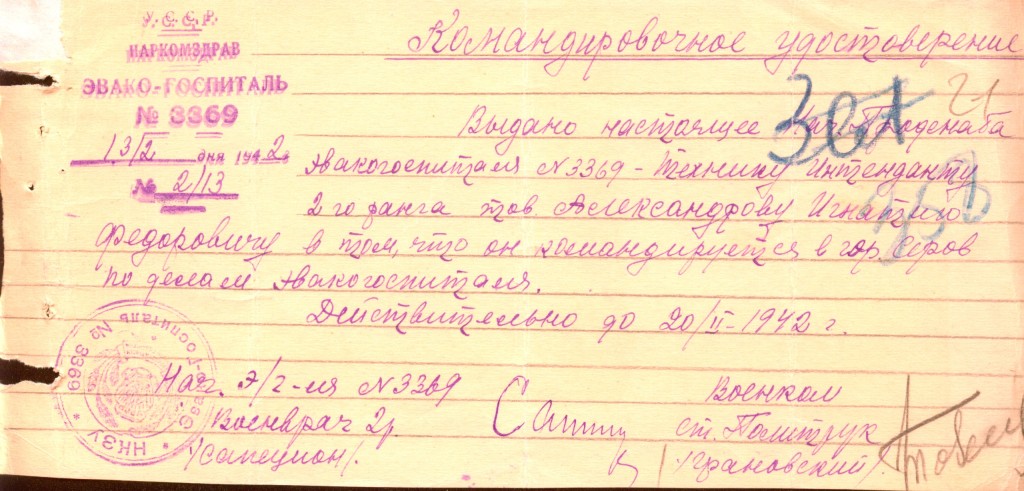 У.С.С.Р.
НАРКОМЗДРАВ
ЭВАКО-ГОСПИТАЛЬ
№ 3369
13/2 дня 1942г
№ 2/13
Командировочное удостоверение
21
Выдано настоящее Нач. Продснаба
эвакогоспиталя N 3369 - Технику Интенданту
2го ранга тов. Александрову Игнатию
Федоровичу в том, что он командируется в гор. Серов
по делам эвакогоспиталя.
Действительно до 20/II-1942 г.
Нач. Э/г-ля N 3369
Военврач 2р.
/Сапецион/.
Военком
ст. Политрук
/Грановский/.
НКЗУ * Эвако-Госпиталь № 3369 *